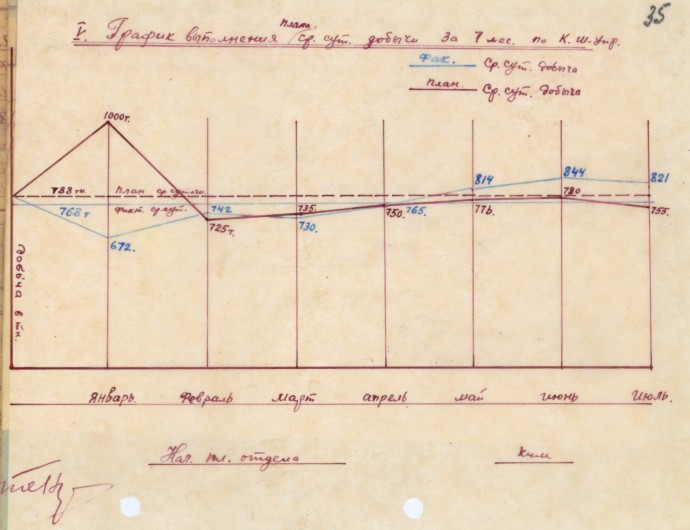 35
V. График выполнения плана ср. сут. добычи за 7 мес. по К. Ш-Упр.
Фак. Ср. сут. добыча
План. Ср. сут. добыча
1000т.
788 тн. План ср. суточн.
768 т факт. ср. сут.
672.
742
725 т.
735.
730.
750.
765.
814
776.
844
780
821
755.
Добыча в тн.
Январь. Февраль Март апрель май июнь Июль.
Нач. пл. отдела